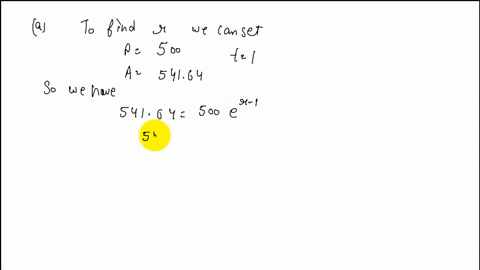 (a) To find r we can set
P = 500 t = 1
A = 541.64
So we have
541.64 = 500 e^{r·1}
54